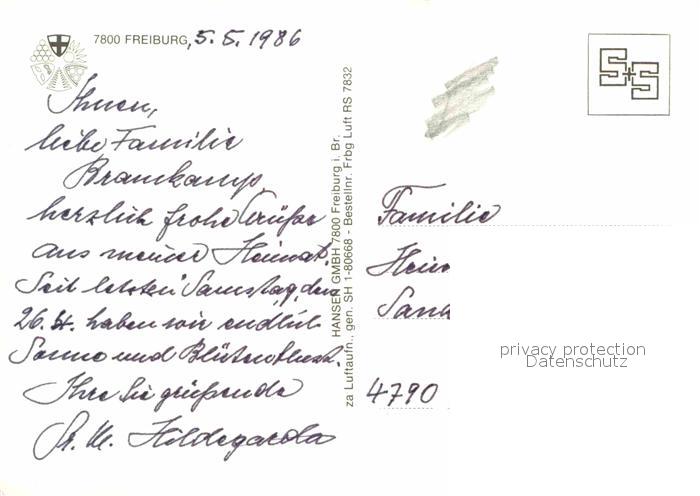 7800 FREIBURG, 5.5.1986
Ihnen,
liebe Familie
Bramkamp,
herzlich frohe Grüße
aus meiner Heimat.
Seit letzten Samstag, dem
26. 4. haben wir endlich
Sonne und Blütenpracht.
Ihre Sie grüßende
Sr. M. Hildegarda
HANSEN GMBH 7800 Freiburg i. Br.
za Luftaufn., gen. SH 1-80668 - Bestellnr. Frbg Luft RS 7832
S+S
Familie
Hein
Sana
4790
privacy protection
Datenschutz